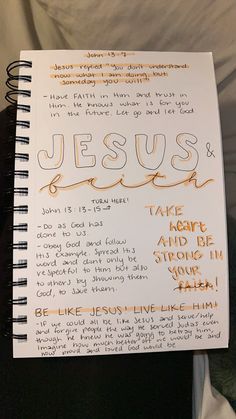 John 13:7
Jesus replied "You don't understand
now what I am doing, but
someday you will"
- Have FAITH in Him and trust in
Him. He knows what is for you
in the future. Let go and let God
JESUS &
faith
TURN HERE!
John 13:13-15 →
- Do as God has
done to us.
- Obey God and follow
His example. Spread His
word and don't only be
respectful to Him but also
to others by showing them
God, to save them.
TAKE
heart
AND BE
STRONG IN
YOUR
FAITH!
BE LIKE JESUS! LIVE LIKE HIM!
- If we could all be like Jesus and serve/help
and forgive people the way He served Judas even
though he knew he was going to betray him,
imagine how much better off we would be and
how proud and loved God would be